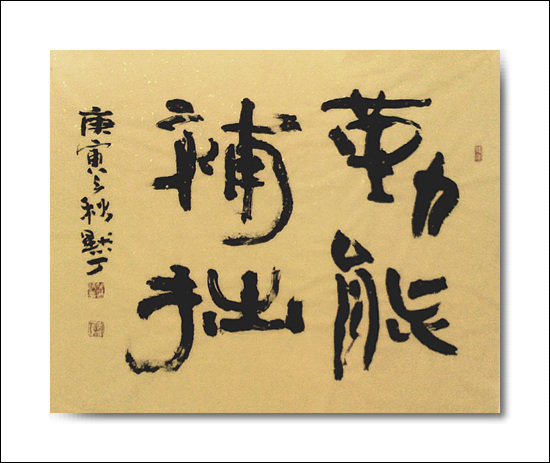 勤能
補拙
庚寅之秋默丁